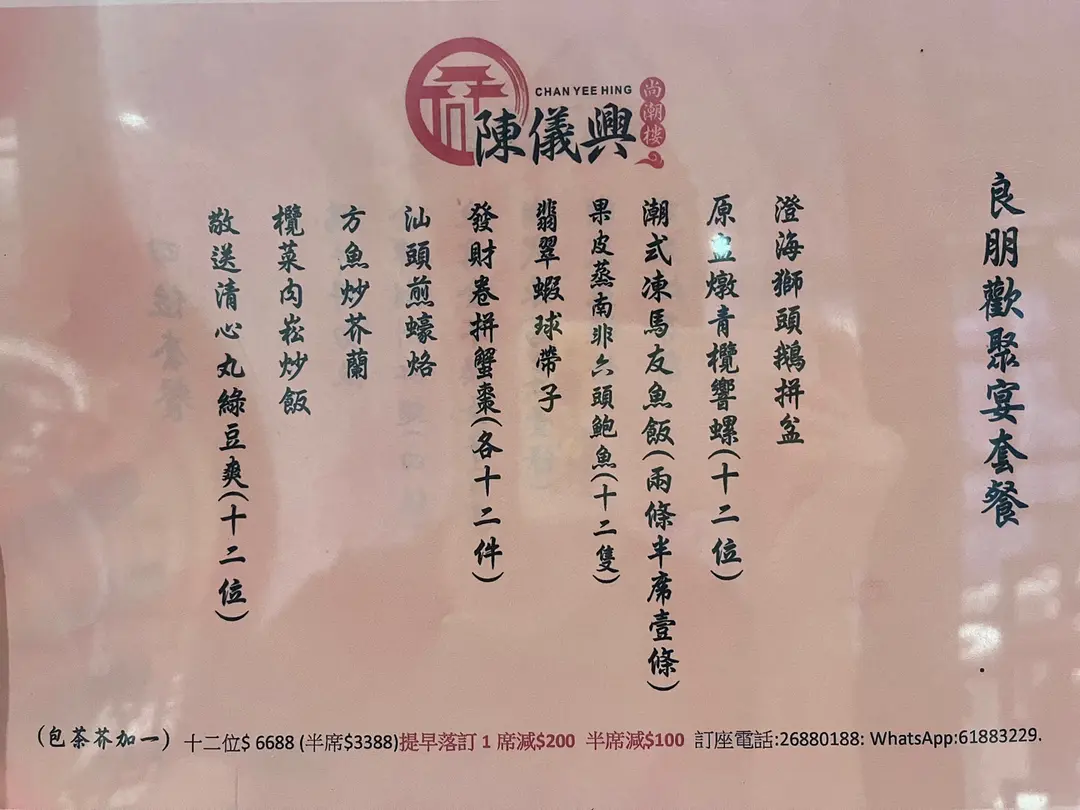 CHAN YEE HING
陳儀興
尚潮樓
良朋歡聚宴套餐
澄海獅頭鵝拼盆
原盅燉青欖響螺(十二位)
潮式凍馬友魚飯(兩條半席壹條)
果皮蒸南非六頭鮑魚(十二隻)
翡翠蝦球帶子
發財卷拼蟹棗(各十二件)
汕頭煎蠔烙
方魚炒芥蘭
欖菜肉崧炒飯
敬送清心丸綠豆爽(十二位)
(包茶芥加一) 十二位$ 6688 (半席$3388)提早落訂 1 席減$200 半席減$100 訂座電話:26880188: WhatsApp:61883229.